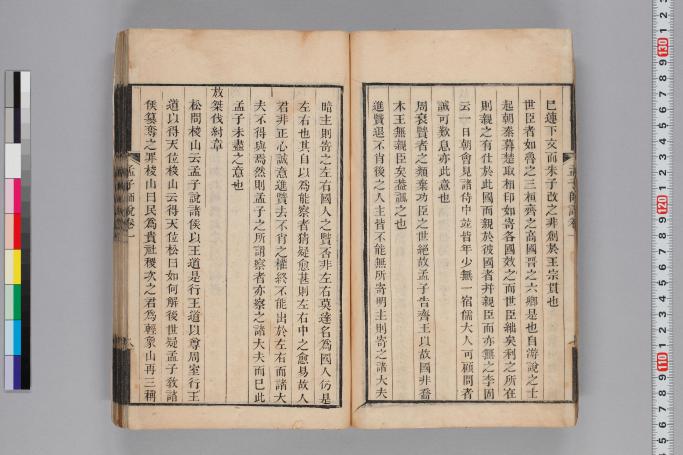 已蓮下文而朱子改之非創於王宗貫也
世臣者如魯之三桓齊之高國晉之六卿是也自游說之士
起朝秦暮楚取相印如寄各國效之而世臣絀矣利之所在
則親之有仕於此國而親於彼國者并親臣而亦無之李固
云一日朝會見諸侍中並皆年少無一宿儒大人可顧問者
誠可歎息亦此意也
周衰賢者之類棄功臣之世絕故孟子告齊王以故國非喬
木王無親臣矣蓋諷之也
進賢退不肖後之人主皆不能無所寄明主則寄之諸大夫
暗主則寄之左右國人之賢否非左右莫達名為國人仍是
左右也其自以為能察者猜疑愈甚則左右中之愈易故人
君非正心誠意進賢去不肖之權終不能出於左右而諸大
夫不得與焉然則孟子之所謂察者亦察之諸大夫而已此
孟子未盡之意也
放桀伐紂章
松問梭山云孟子說諸侯以王道是行王道以尊周室行王
道以得天位梭山云得天位松曰如何解後世疑孟子教諸
侯篡奪之罪梭山曰民為貴社稷次之君為輕象山再三稱
孟子師說卷一